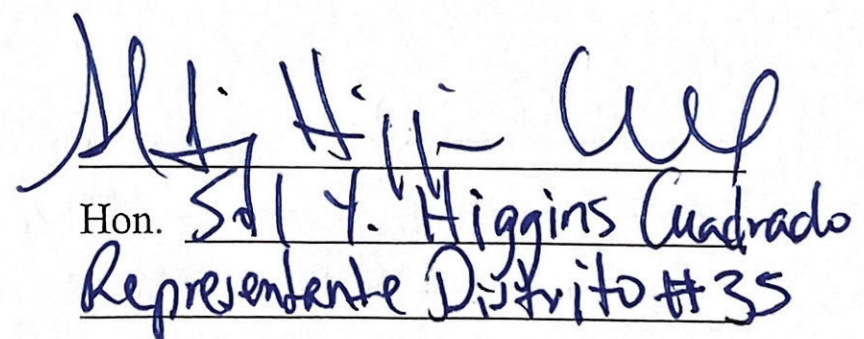 Hon. Sol Y. Higgins Cuadrado
Representante Distrito #35